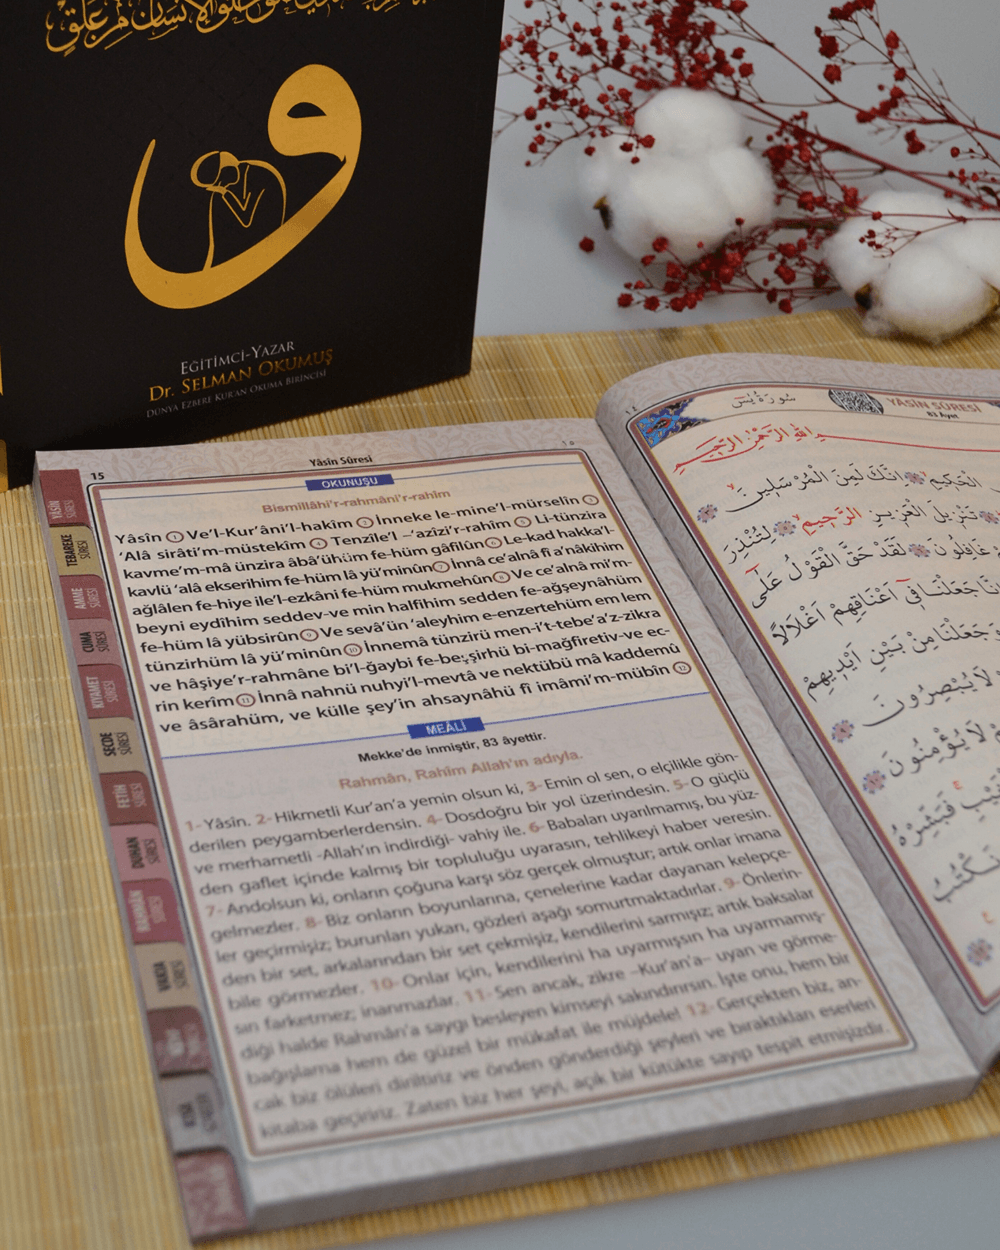 خلق خلق الإنسان من علق
EĞİTİMCİ-YAZAR
Dr. SELMAN OKUMUŞ
DÜNYA EZBERE KUR'AN OKUMA BİRİNCİSİ
15
Yâsîn Sûresi
OKUNUŞU
Bismillâhi'r-rahmâni'r-rahîm
Yâsîn 1 Ve'l-Kur'âni'l-hakîm 2 İnneke le-mine'l-mürselîn 3
'Alâ sirâti'm-müstekîm 4 Tenzîle'l –'azîzi'r-rahîm 5 Li-tünzira
kavme'm-mâ ünzira âbâ'ühüm fe-hüm gâfilûn 6 Le-kad hakka'l-
kavlü 'alâ ekserihim fe-hüm lâ yü'minûn 7 İnnâ ce'alnâ fî a'nâkihim
ağlâlen fe-hiye ile'l-ezkâni fe-hüm mukmehûn 8 Ve ce'alnâ mi'm-
beyni eydîhim seddev-ve min halfihim sedden fe-ağşeynâhüm
fe-hüm lâ yübsirûn 9 Ve sevâ'ün 'aleyhim e-enzertehüm em lem
tünzirhüm lâ yü'minûn 10 İnnemâ tünzirü men-i't-tebe'a'z-zikra
ve hâşiye'r-rahmâne bi'l-ğaybi fe-be;şirhü bi-mağfiretiv-ve ec-
rin kerîm 11 İnnâ nahnü nuhyi'l-mevtâ ve nektübü mâ kaddemû
ve âsârahüm, ve külle şey'in ahsaynâhü fî imâmi'm-mübîn 12
MEÂLİ
Mekke'de inmiştir, 83 âyettir.
Rahmân, Rahîm Allah'ın adıyla.
1- Yâsîn. 2- Hikmetli Kur'an'a yemin olsun ki, 3- Emin ol sen, o elçilikle gön-
derilen peygamberlerdensin. 4- Dosdoğru bir yol üzerindesin. 5- O güçlü
ve merhametli -Allah'ın indirdiği- vahiy ile. 6- Babaları uyarılmamış, bu yüz-
den gaflet içinde kalmış bir topluluğu uyarasın, tehlikeyi haber veresin.
7- Andolsun ki, onların çoğuna karşı söz gerçek olmuştur; artık onlar imana
gelmezler. 8- Biz onların boyunlarına, çenelerine kadar dayanan kelepçe-
ler geçirmişiz; burunları yukarı, gözleri aşağı somurtmaktadırlar. 9- Önlerin-
den bir set, arkalarından bir set çekmişiz, kendilerini sarmışız; artık baksalar
bile görmezler. 10- Onlar için, kendilerini ha uyarmışsın ha uyarmamış-
sın farketmez; inanmazlar. 11- Sen ancak, zikre –Kur'an'a– uyan ve görme-
diği halde Rahmân'a saygı besleyen kimseyi sakındırırsın. İşte onu, hem bir
bağışlama hem de güzel bir mükafat ile müjdele! 12- Gerçekten biz, an-
cak biz ölüleri diriltiriz ve önden gönderdiği şeyleri ve bıraktıkları eserleri
kitaba geçiririz. Zaten biz her şeyi, açık bir kütükte sayıp tespit etmişizdir.
YÂSİN SÛRESİ
TEBAREKE SÛRESİ
AMME SÛRESİ
CUMA SÛRESİ
KIYAMET SÛRESİ
SECDE SÛRESİ
FETİH SÛRESİ
DUHAN SÛRESİ
RAHMÂN SÛRESİ
VAKIA SÛRESİ
KISA
١٤
سُورَةُ يٰسٓ
YÂSÎN SÛRESİ
83 Âyet
اللّٰهِ الرَّحْمٰنِ الرَّحِيمِ
الْحَكِيمِ اِنَّكَ لَمِنَ الْمُرْسَلِينَ
تَنْزِيلَ الْعَزِيزِ الرَّحِيمِ لِتُنْذِرَ
غَافِلُونَ لَقَدْ حَقَّ الْقَوْلُ عَلٰٓى
اِنَّا جَعَلْنَا فِٓي اَعْنَاقِهِمْ اَغْلَالًا
وَجَعَلْنَا مِنْ بَيْنِ اَيْدِيهِمْ
لَا يُبْصِرُونَ
لَا يُؤْمِنُونَ
فَبَشِّرْهُ
وَنَكْتُبُ